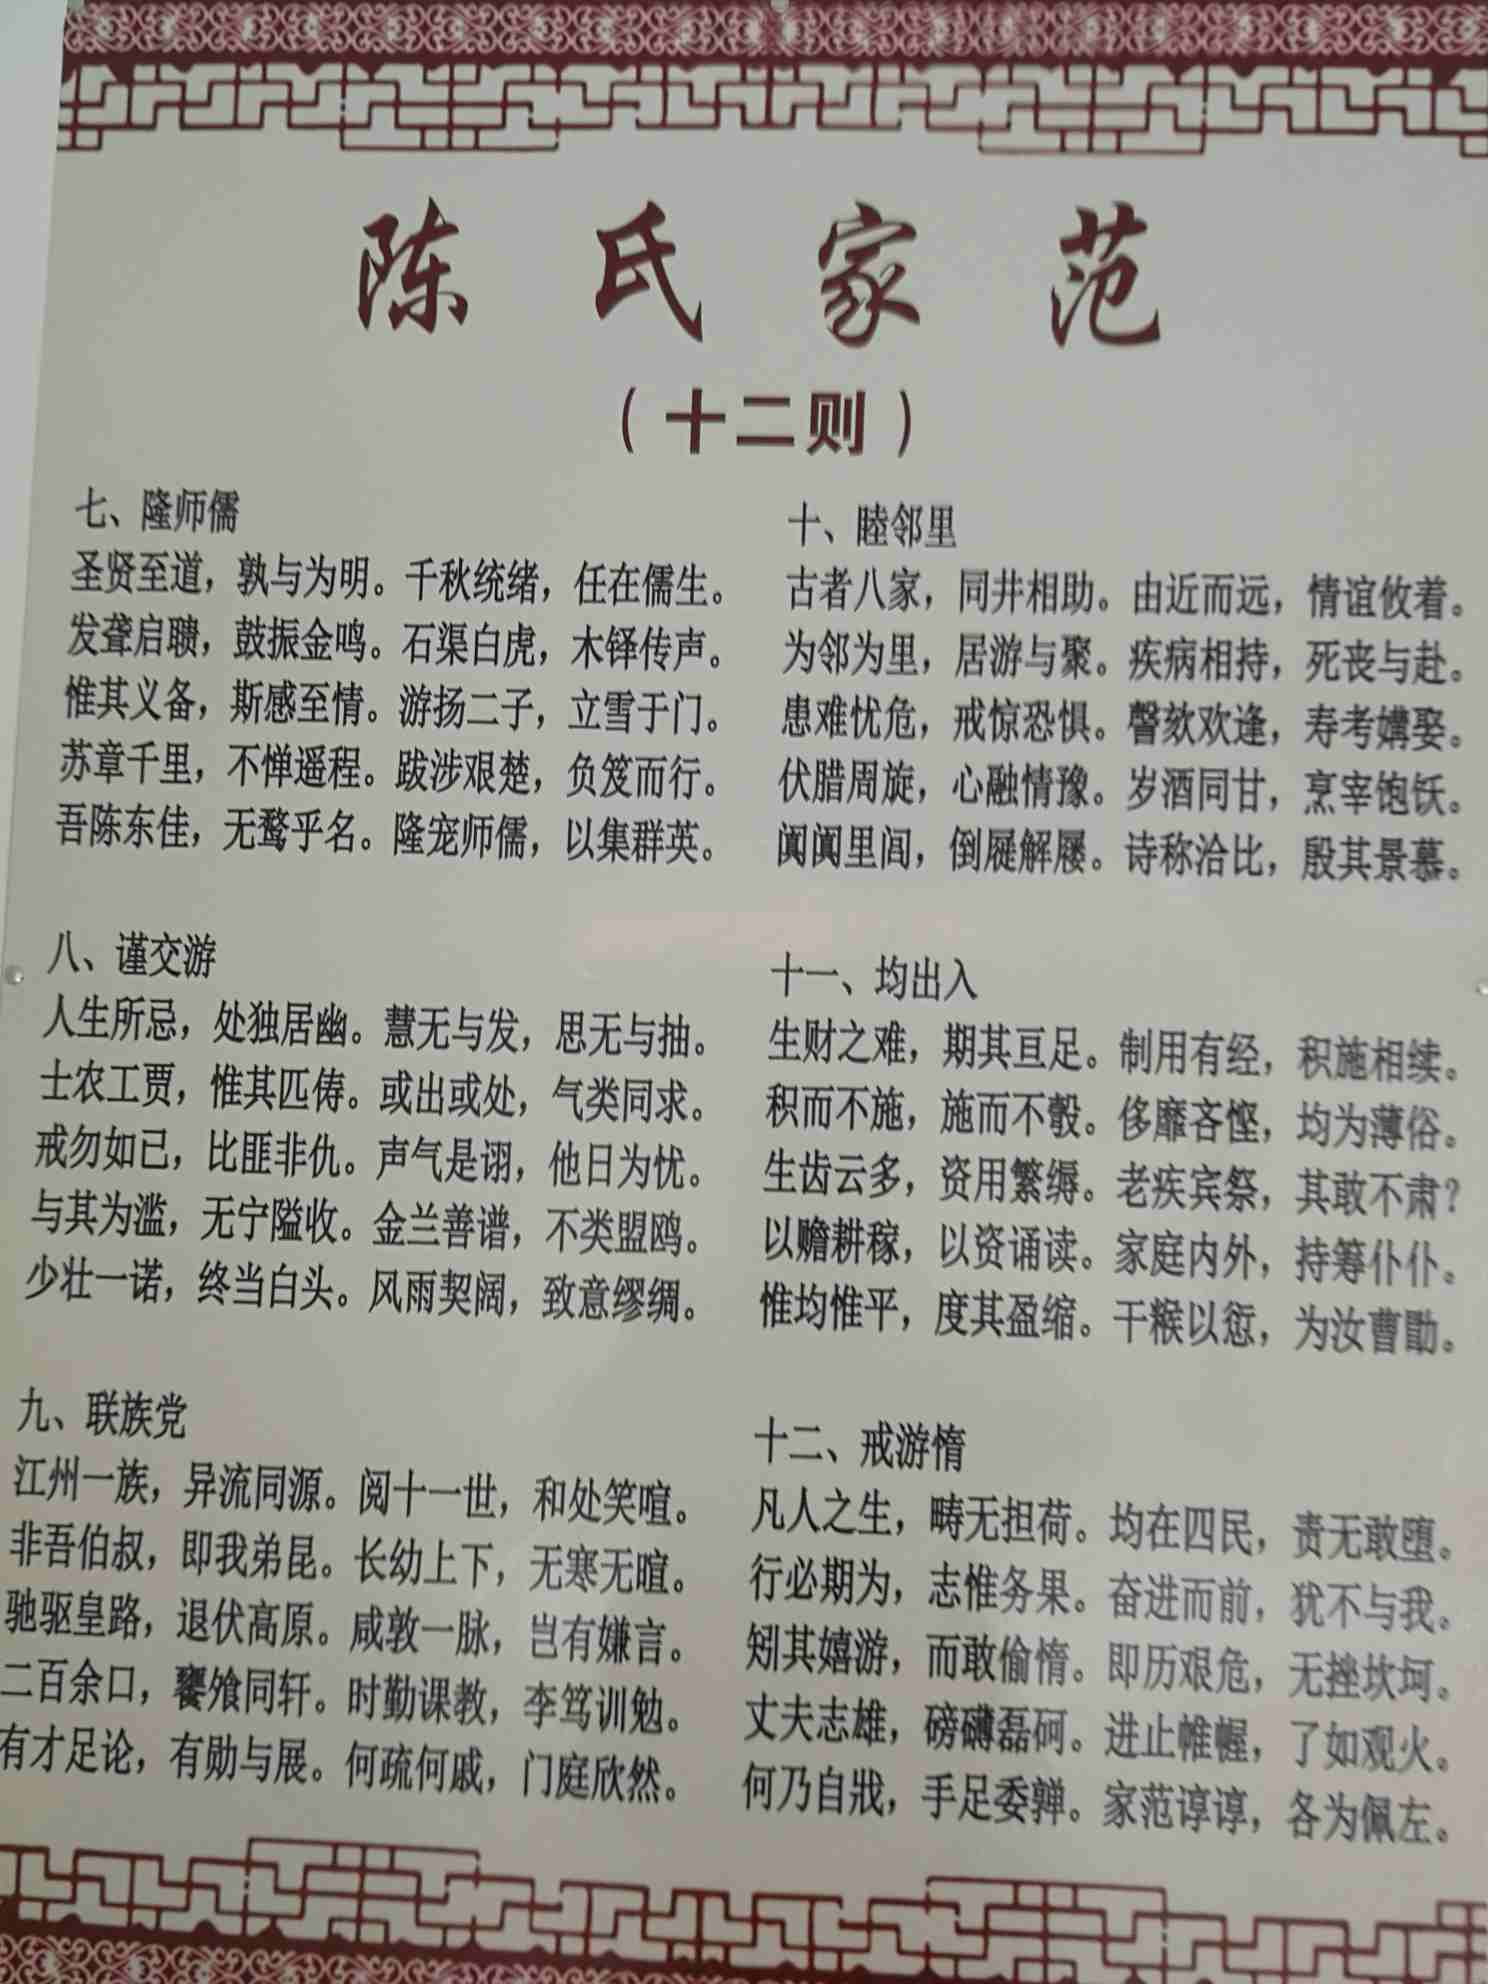 陈氏家范
（十二则）
七、隆师儒
圣贤至道，孰与为明。千秋统绪，任在儒生。
发聋启聩，鼓振金鸣。石渠白虎，木铎传声。
惟其义备，斯感至情。游扬二子，立雪于门。
苏章千里，不惮遥程。跋涉艰楚，负笈而行。
吾陈东佳，无鹜乎名。隆宠师儒，以集群英。
八、谨交游
人生所忌，处独居幽。慧无与发，思无与抽。
士农工贾，惟其匹俦。或出或处，气类同求。
戒勿如已，比匪非仇。声气是诩，他日为忧。
与其为滥，无宁隘收。金兰善谱，不类盟鸥。
少壮一诺，终当白头。风雨契阔，致意缪绸。
九、联族党
江州一族，异流同源。阅十一世，和处笑喧。
非吾伯叔，即我弟昆。长幼上下，无寒无暄。
驰驱皇路，退伏高原。咸敦一脉，岂有嫌言。
二百余口，饔飧同轩。时勤课教，李笃训勉。
有才足论，有勋与展。何疏何戚，门庭欣然。
十、睦邻里
古者八家，同井相助。由近而远，情谊攸着。
为邻为里，居游与聚。疾病相持，死丧与赴。
患难忧危，戒惊恐惧。謦欬欢逢，寿考媾娶。
伏腊周旋，心融情豫。岁酒同甘，烹宰饱饫。
阗阗里闾，倒屣解屦。诗称洽比，殷其景慕。
十一、均出入
生财之难，期其亘足。制用有经，积施相续。
积而不施，施而不彀。侈靡吝悭，均为薄俗。
生齿云多，资用繁缛。老疾宾祭，其敢不肃？
以赡耕稼，以资诵读。家庭内外，持筹仆仆。
惟均惟平，度其盈缩。干糇以愆，为汝曹勖。
十二、戒游惰
凡人之生，畴无担荷。均在四民，责无敢堕。
行必期为，志惟务果。奋进而前，犹不与我。
矧其嬉游，而敢偷惰。即历艰危，无挫坎坷。
丈夫志雄，磅礴磊砢。进止帷幄，了如观火。
何乃自戕，手足委亸。家范谆谆，各为佩左。